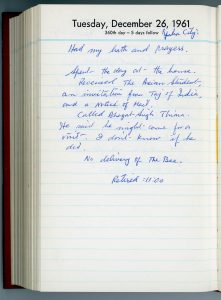 Tuesday, December 26, 1961
360th day – 5 days follow
Yuba City:
Had my bath and prayers.
Spent the day at the house.
Received The Asian Student,
an invitation from Taj of India,
and a Notice of Meet.
Called Bhagat Singh Thiara.
He said he might come for a
visit. I don't know if he
did.
No delivery of The Bee.
Retired: 11:00